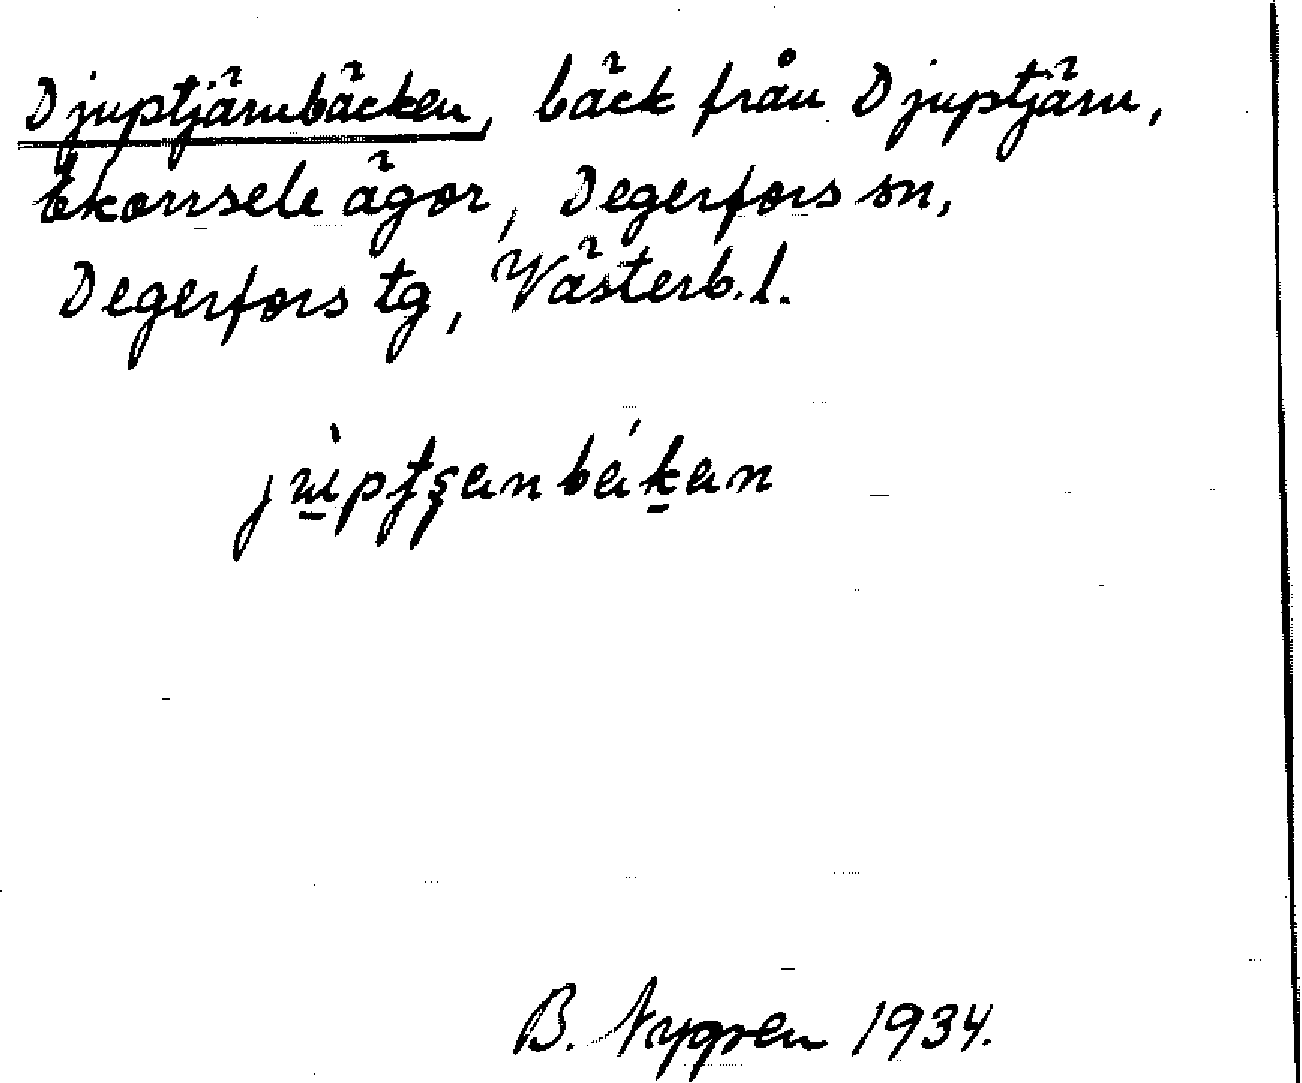 Djuptjärnbäcken, bäck från Djuptjärn,
Ekorrsele ägor, Degerfors sn,
Degerfors tg, Västerb. l.
B. Nygren 1934.